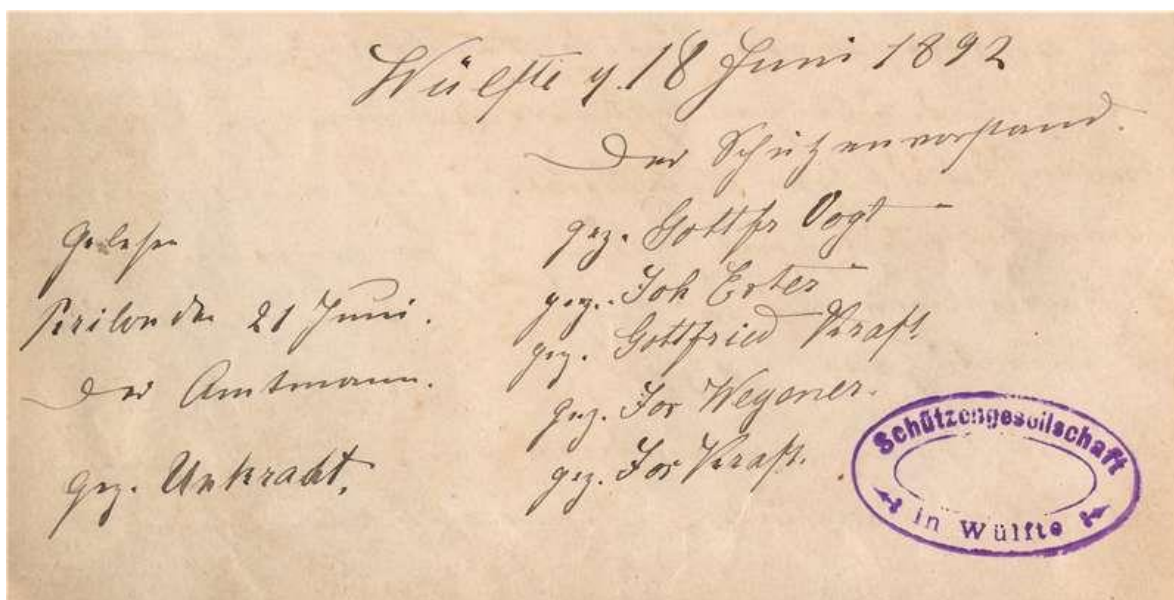 Wülfte d. 18 Juni 1892
Der Schützenvorstand.
gez. Gottfr Vogt
gez. Joh Ester
gez. Gottfried Kraft
gez. Jos Wegener.
gez. Jos Kraft.
Gelesen
Brilon den 21 Juni.
Der Amtmann.
gez. Unkraut.
Schützengesellschaft
in Wülfte